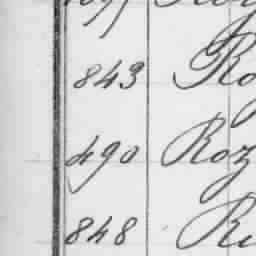 843 Ro
490 Roz
848 Ru